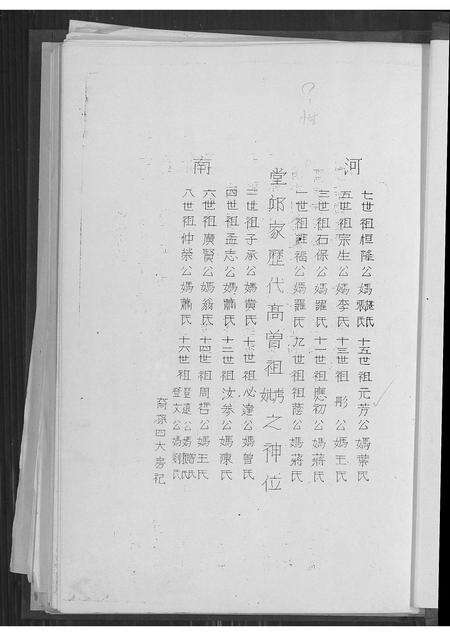 河 南
七世祖恒隆公媽張氏 十五世祖元芳公媽葉氏
五世祖宗生公媽李氏 十三世祖彤公媽王氏
三世祖石保公媽羅氏 十一世祖應初公媽蔣氏
一世祖 福公媽羅氏 九世祖蔭公媽蔣氏
堂邱家歷代高曾祖 之神位
二世祖子承公媽黃氏 十世祖必達公媽曾氏
四世祖孟志公媽蕭氏 十二世祖汝恭公媽陳氏
六世祖廣賢公媽翁氏 十四世祖周哲公媽王氏
八世祖仲榮公媽蕭氏 十六世祖 公媽 氏 登文公媽劉氏
裔孫四大房祀